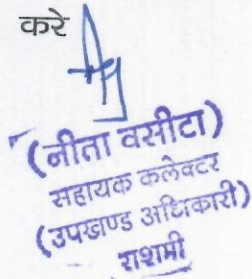 करे
(नीता वसीटा)
सहायक कलेक्टर
(उपखण्ड अधिकारी)
राशमी